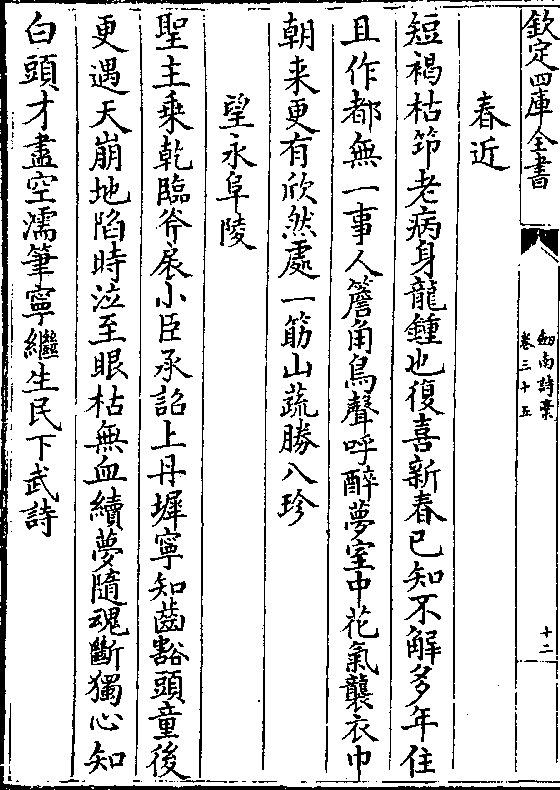 欽定四庫全書
劔南詩稾
卷三十五
十二
春近
短褐枯笻老病身龍鍾也復喜新春已知不解多年住
且作都無一事人簷角鳥聲呼醉夢室中花氣襲衣巾
朝来更有欣然處一筯山蔬勝八珍
望永阜陵
聖主乘乾臨斧扆小臣承詔上丹墀寧知齒豁頭童後
更遇天崩地陷時泣至眼枯無血續夢隨魂斷獨心知
白頭才盡空濡筆寧繼生民下武詩